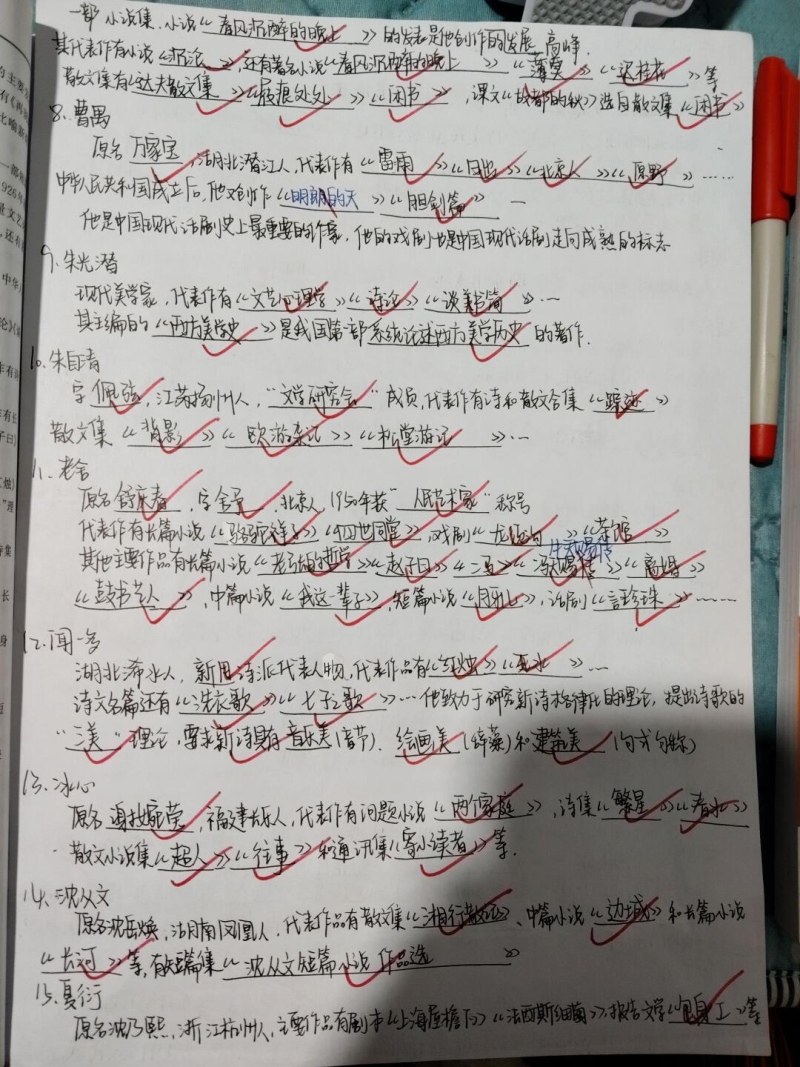 一部小说集、小说《春风沉醉的晚上》的发表是他创作的发展高峰.
其代表作有小说《沉沦》,还有著名小说《春风沉醉的晚上》《薄奠》《迟桂花》等
散文集有《达夫散文集》《屐痕处处》《闲书》,课文《故都的秋》选自散文集《闲书》
8.曹禺
原名万家宝,湖北潜江人,代表作有《雷雨》《日出》《北京人》《原野》……
中华人民共和国成立后,他又创作《明朗的天》《胆剑篇》…
他是中国现代话剧史上最重要的作家,他的戏剧也是中国现代话剧走向成熟的标志
9.朱光潜
现代美学家,代表作有《文艺心理学》《诗论》《谈美书简》…
其主编的《西方美学史》是我国第一部系统论述西方美学历史的著作.
10.朱自清
字佩弦,江苏扬州人,“文学研究会”成员,代表作有诗和散文合集《踪迹》
散文集《背影》《欧游杂记》《松堂游记》…
11.老舍
原名舒庆春,字舍予,北京人,1950年获“人民艺术家”称号
代表作有长篇小说《骆驼祥子》《四世同堂》,戏剧《龙须沟》《茶馆》
其他主要作品有长篇小说《老张的哲学》《赵子曰》《二马》《牛天赐传》《离婚》
《鼓书艺人》,中篇小说《我这一辈子》,短篇小说《月牙儿》,话剧《言珍珠》……
12.闻一多
湖北浠水人,新月诗派代表人物,代表作品有《红烛》《死水》…
诗文名篇还有《洗衣歌》《七子之歌》…他致力于研究新诗格律化的理论,提出诗歌的
“三美”理论,要求新诗具有音乐美(音节)、绘画美(辞藻)和建筑美(句式匀称)
13.冰心
原名谢婉莹,福建长乐人,代表作有问题小说《两个家庭》,诗集《繁星》《春水》
散文小说集《超人》《往事》和通讯集《寄小读者》等.
14.沈从文
原名沈岳焕,湖南凤凰人,代表作品有散文集《湘行散记》、中篇小说《边城》和长篇小说
《长河》等,有短篇集《沈从文短篇小说作品选》
15.夏衍
原名沈乃熙,浙江杭州人,主要作品有剧本《上海屋檐下》《法西斯细菌》,报告文学《包身工》等